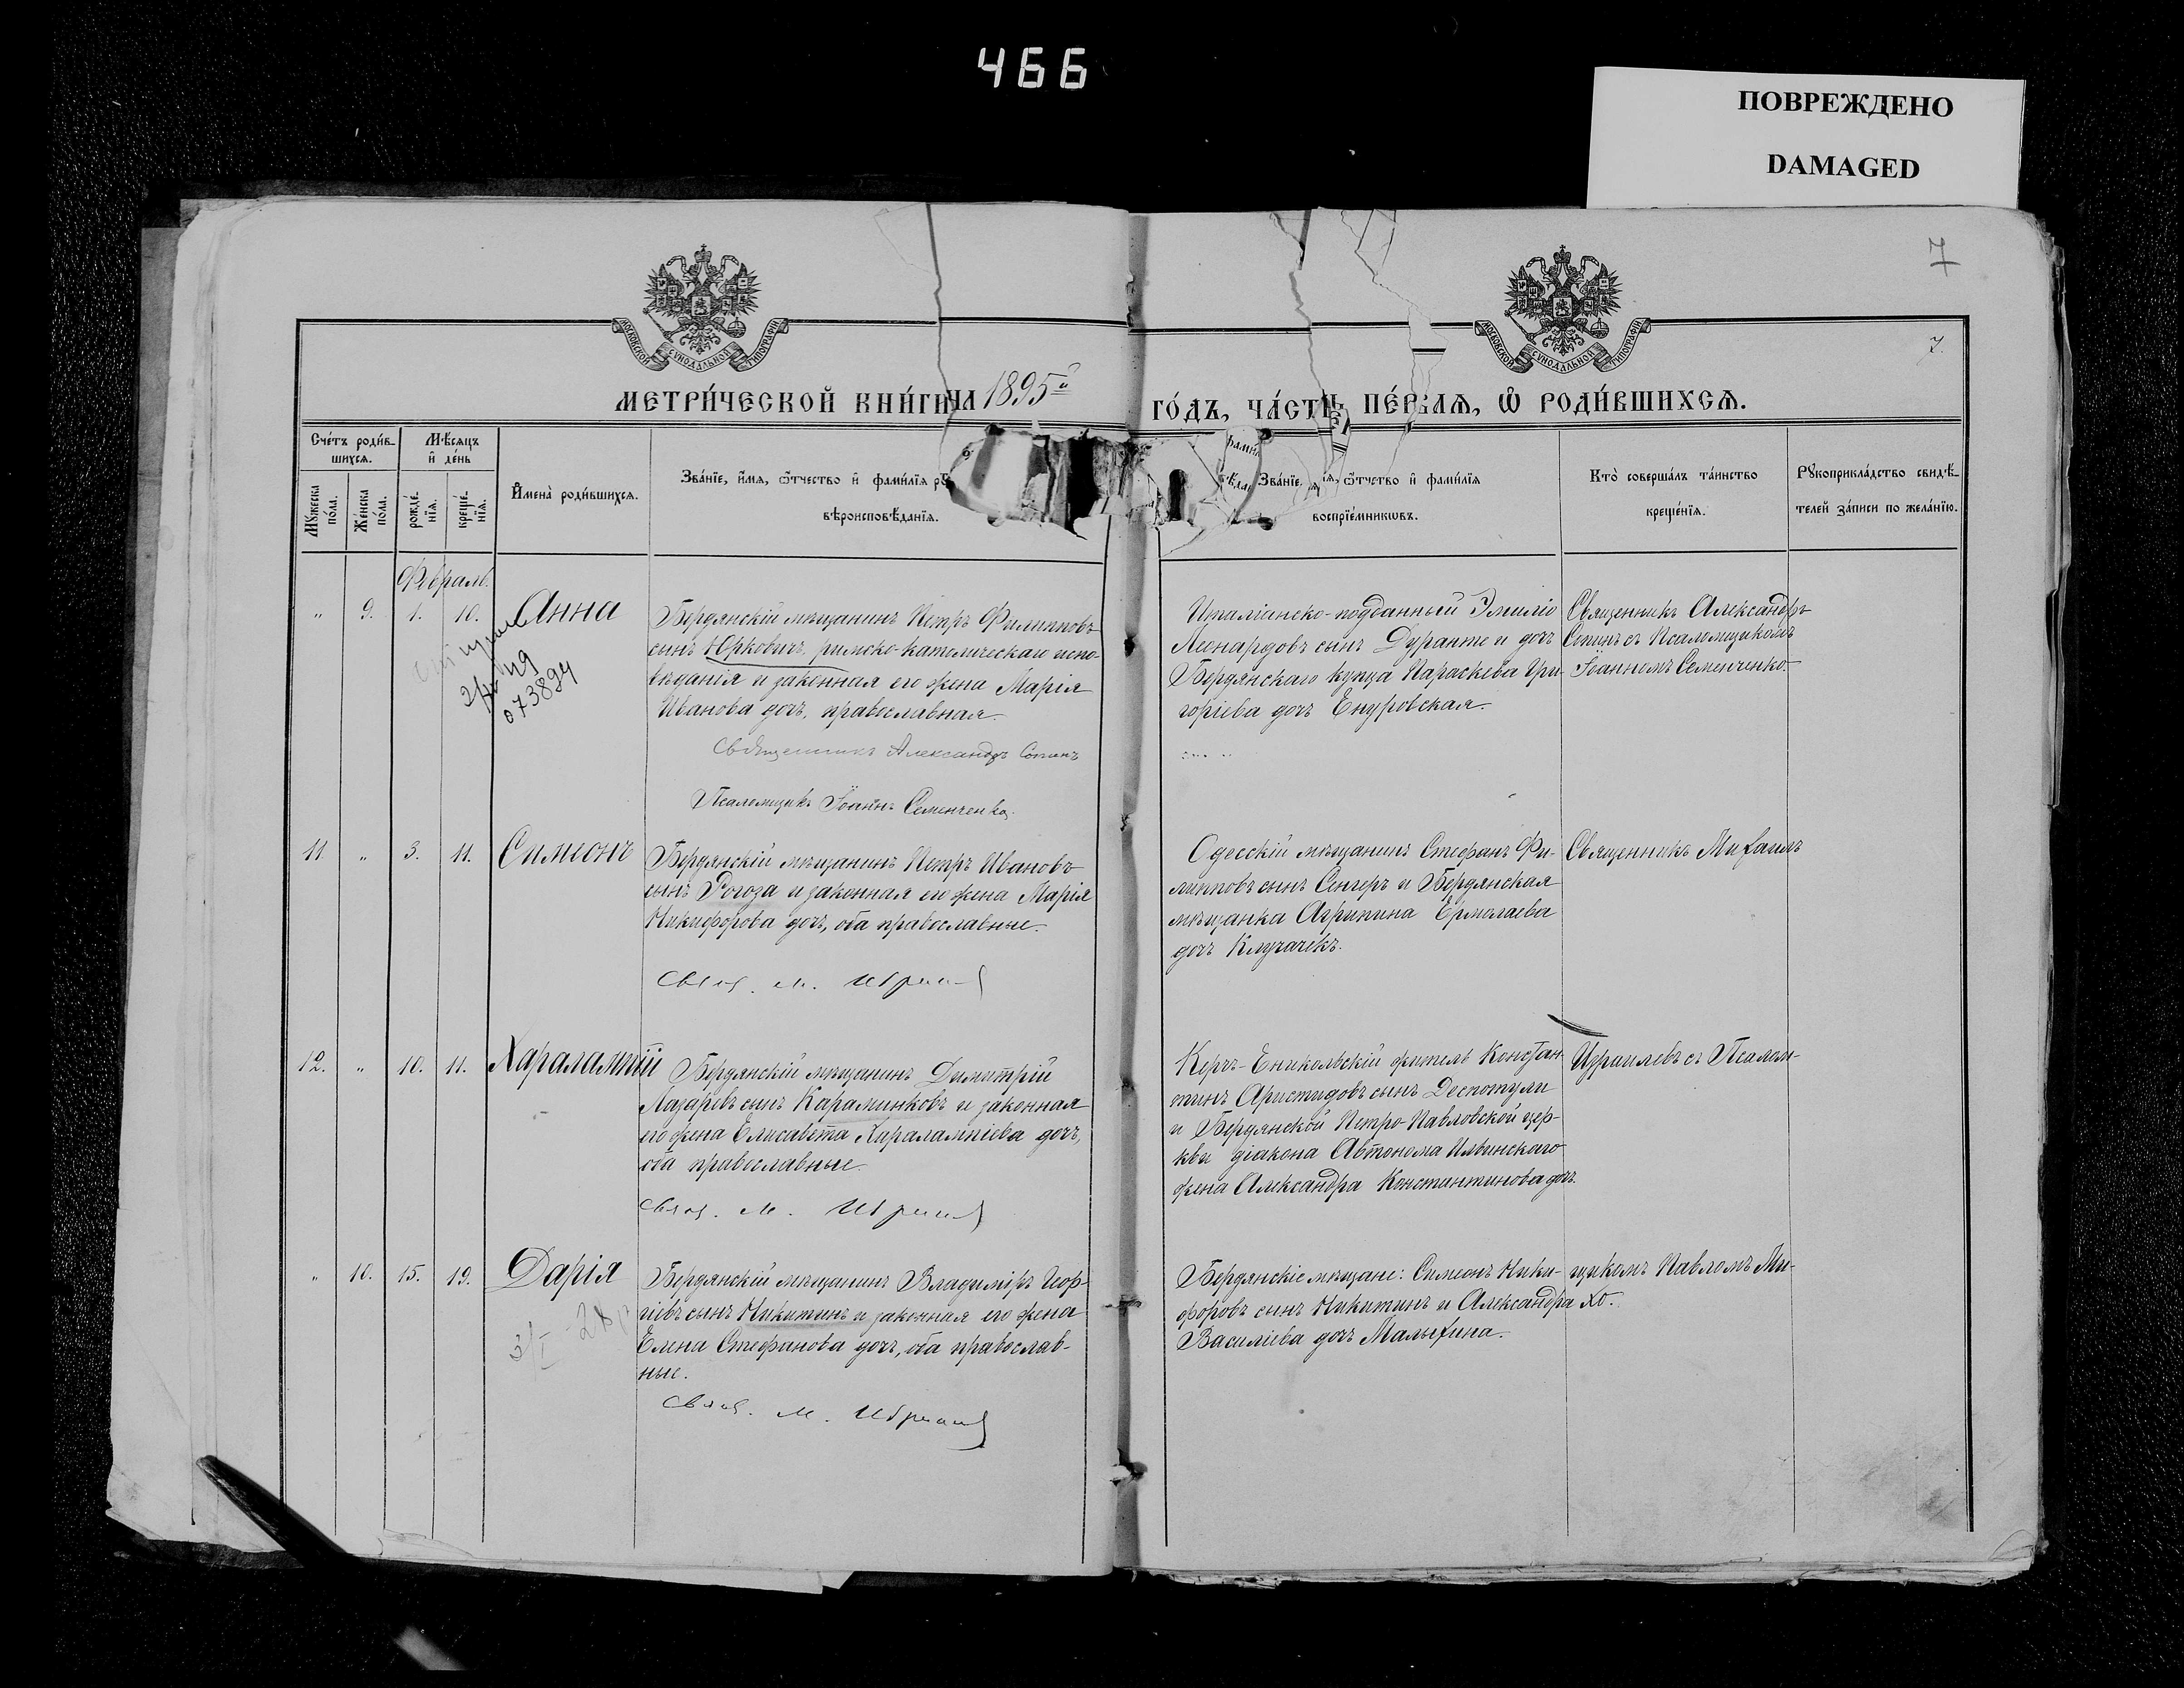 466
ПОВРЕЖДЕНО
DAMAGED
7
7.
МОСКОВСКОЙ СУНОДАЛЬНОЙ ТИПОГРАФІИ
МОСКОВСКОЙ СУНОДАЛЬНОЙ ТИПОГРАФІИ
МЕТРИ́ЧЕСКОЙ КНИ́ГИ НА 1895й ГО́ДЪ, ЧА́СТЬ ПЕ́РВАЯ, Ѡ РОДИ́ВШИХСЯ.
Сче́тъ роди́в-
шихся.
Мѣ́сяцъ
и де́нь
Му́жеска
по́ла.
Же́нска
по́ла.
рожде́-
нїя.
креще́-
нїя.
Имена̀ роди́вшихся.
Зва́нїе, и́мя, ѻ́тчество и фами́лїя
вѣроисповѣ́данїя.
Зва́нїе, ѻ́тчество и фами́лїя
воспрїе́мникѡвъ.
Кто̀ соверша́лъ та́инство
креще́нїя.
Рꙋкоприкла́дство свидѣ́-
телей за́писи по жела́нїю.
Февраль.
" 9. 1. 10. Анна
073894
Бердянскій мѣщанинъ Петръ Филипповъ
сынъ Юрковичъ, римско-католическаго испо-
вѣданія и законная его жена Марія
Иванова дочь, православная.
Священникъ Александръ Сопинъ
Псаломщикъ Іоаннъ Семенченко.
Италіанско-подданный Эмиліо
Леонардовъ сынъ Дуранте и дочь
Бердянскаго купца Параскева Гри-
горіева дочь Енуровская.
Священникъ Александръ
Сопинъ съ Псаломщикомъ
Іоанномъ Семенченко.
11 " 3. 11. Симеонъ
Бердянскій мѣщанинъ Петръ Ивановъ
сынъ Рогоза и законная его жена Марія
Никифорова дочь, оба православные.
Свящ. М.
Одесскій мѣщанинъ Стефанъ Фи-
липповъ сынъ Сенгеръ и Бердянская
мѣщанка Агрипина Ермолаева
дочь Клучачекъ.
Священникъ Михаилъ
12. " 10. 11. Харалампій
Бердянскій мѣщанинъ Димитрій
Лазаревъ сынъ Караминковъ и законная
его жена Елисавета Харалампіева дочь,
оба православные.
Свящ. М.
Керчь-Еникольскій житель Констан-
тинъ Аристидовъ сынъ Деспотули
и Бердянской Петро-Павловской цер-
кви діакона Автонома Ильинскаго
жена Александра Константинова дочь.
Израилевъ съ Псалом-
" 10. 15. 19. Дарія
Бердянскій мѣщанинъ Владиміръ Геор-
гіевъ сынъ Никитинъ и законная его жена
Елена Стефанова дочь, оба православ-
ные.
Свящ. М.
Бердянскіе мѣщане: Симеонъ Ники-
форовъ сынъ Никитинъ и Александра
Василіева дочь Малыхина.
щикомъ Павломъ Ми-
хо.